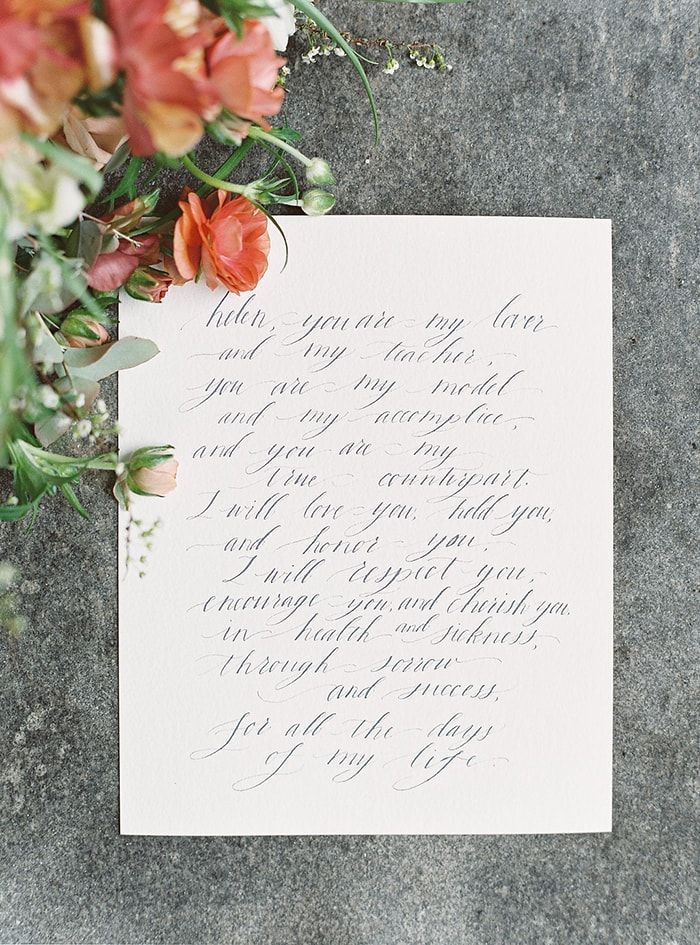 helen, you are my lover
and my teacher,
you are my model
and my accomplice,
and you are my
true counterpart.
I will love you, hold you,
and honor you,
I will respect you,
encourage you, and cherish you,
in health and sickness,
through sorrow
and success,
for all the days
of my life.